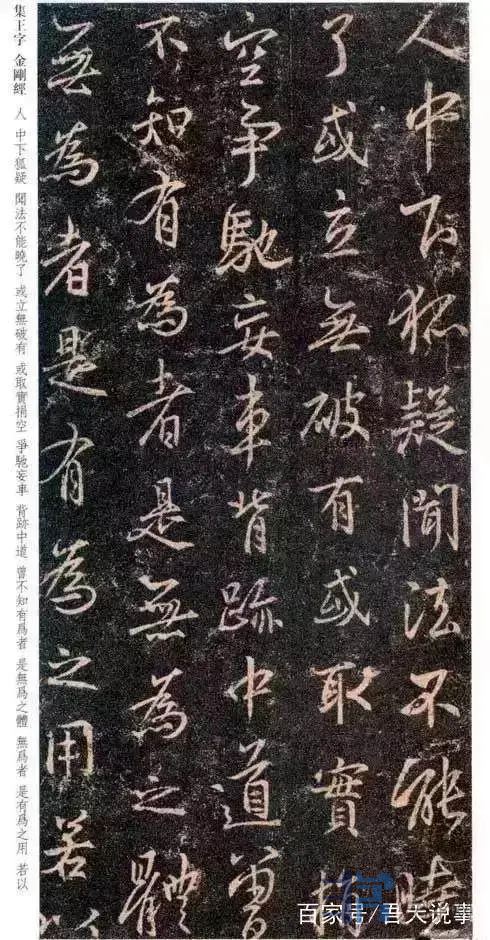 人中下狐疑聞法不能曉
了或立無破有或取實捐
空争馳妄車背跡中道曽
不知有為者是無為之體
無為者是有為之用若以
集王字 金剛經 人 中下狐疑 聞法不能曉了 或立無破有 或取實捐空 爭馳妄車 背跡中道 曾不知有爲者 是無爲之體 無爲者 是有爲之用 若以
百家号/君天说事